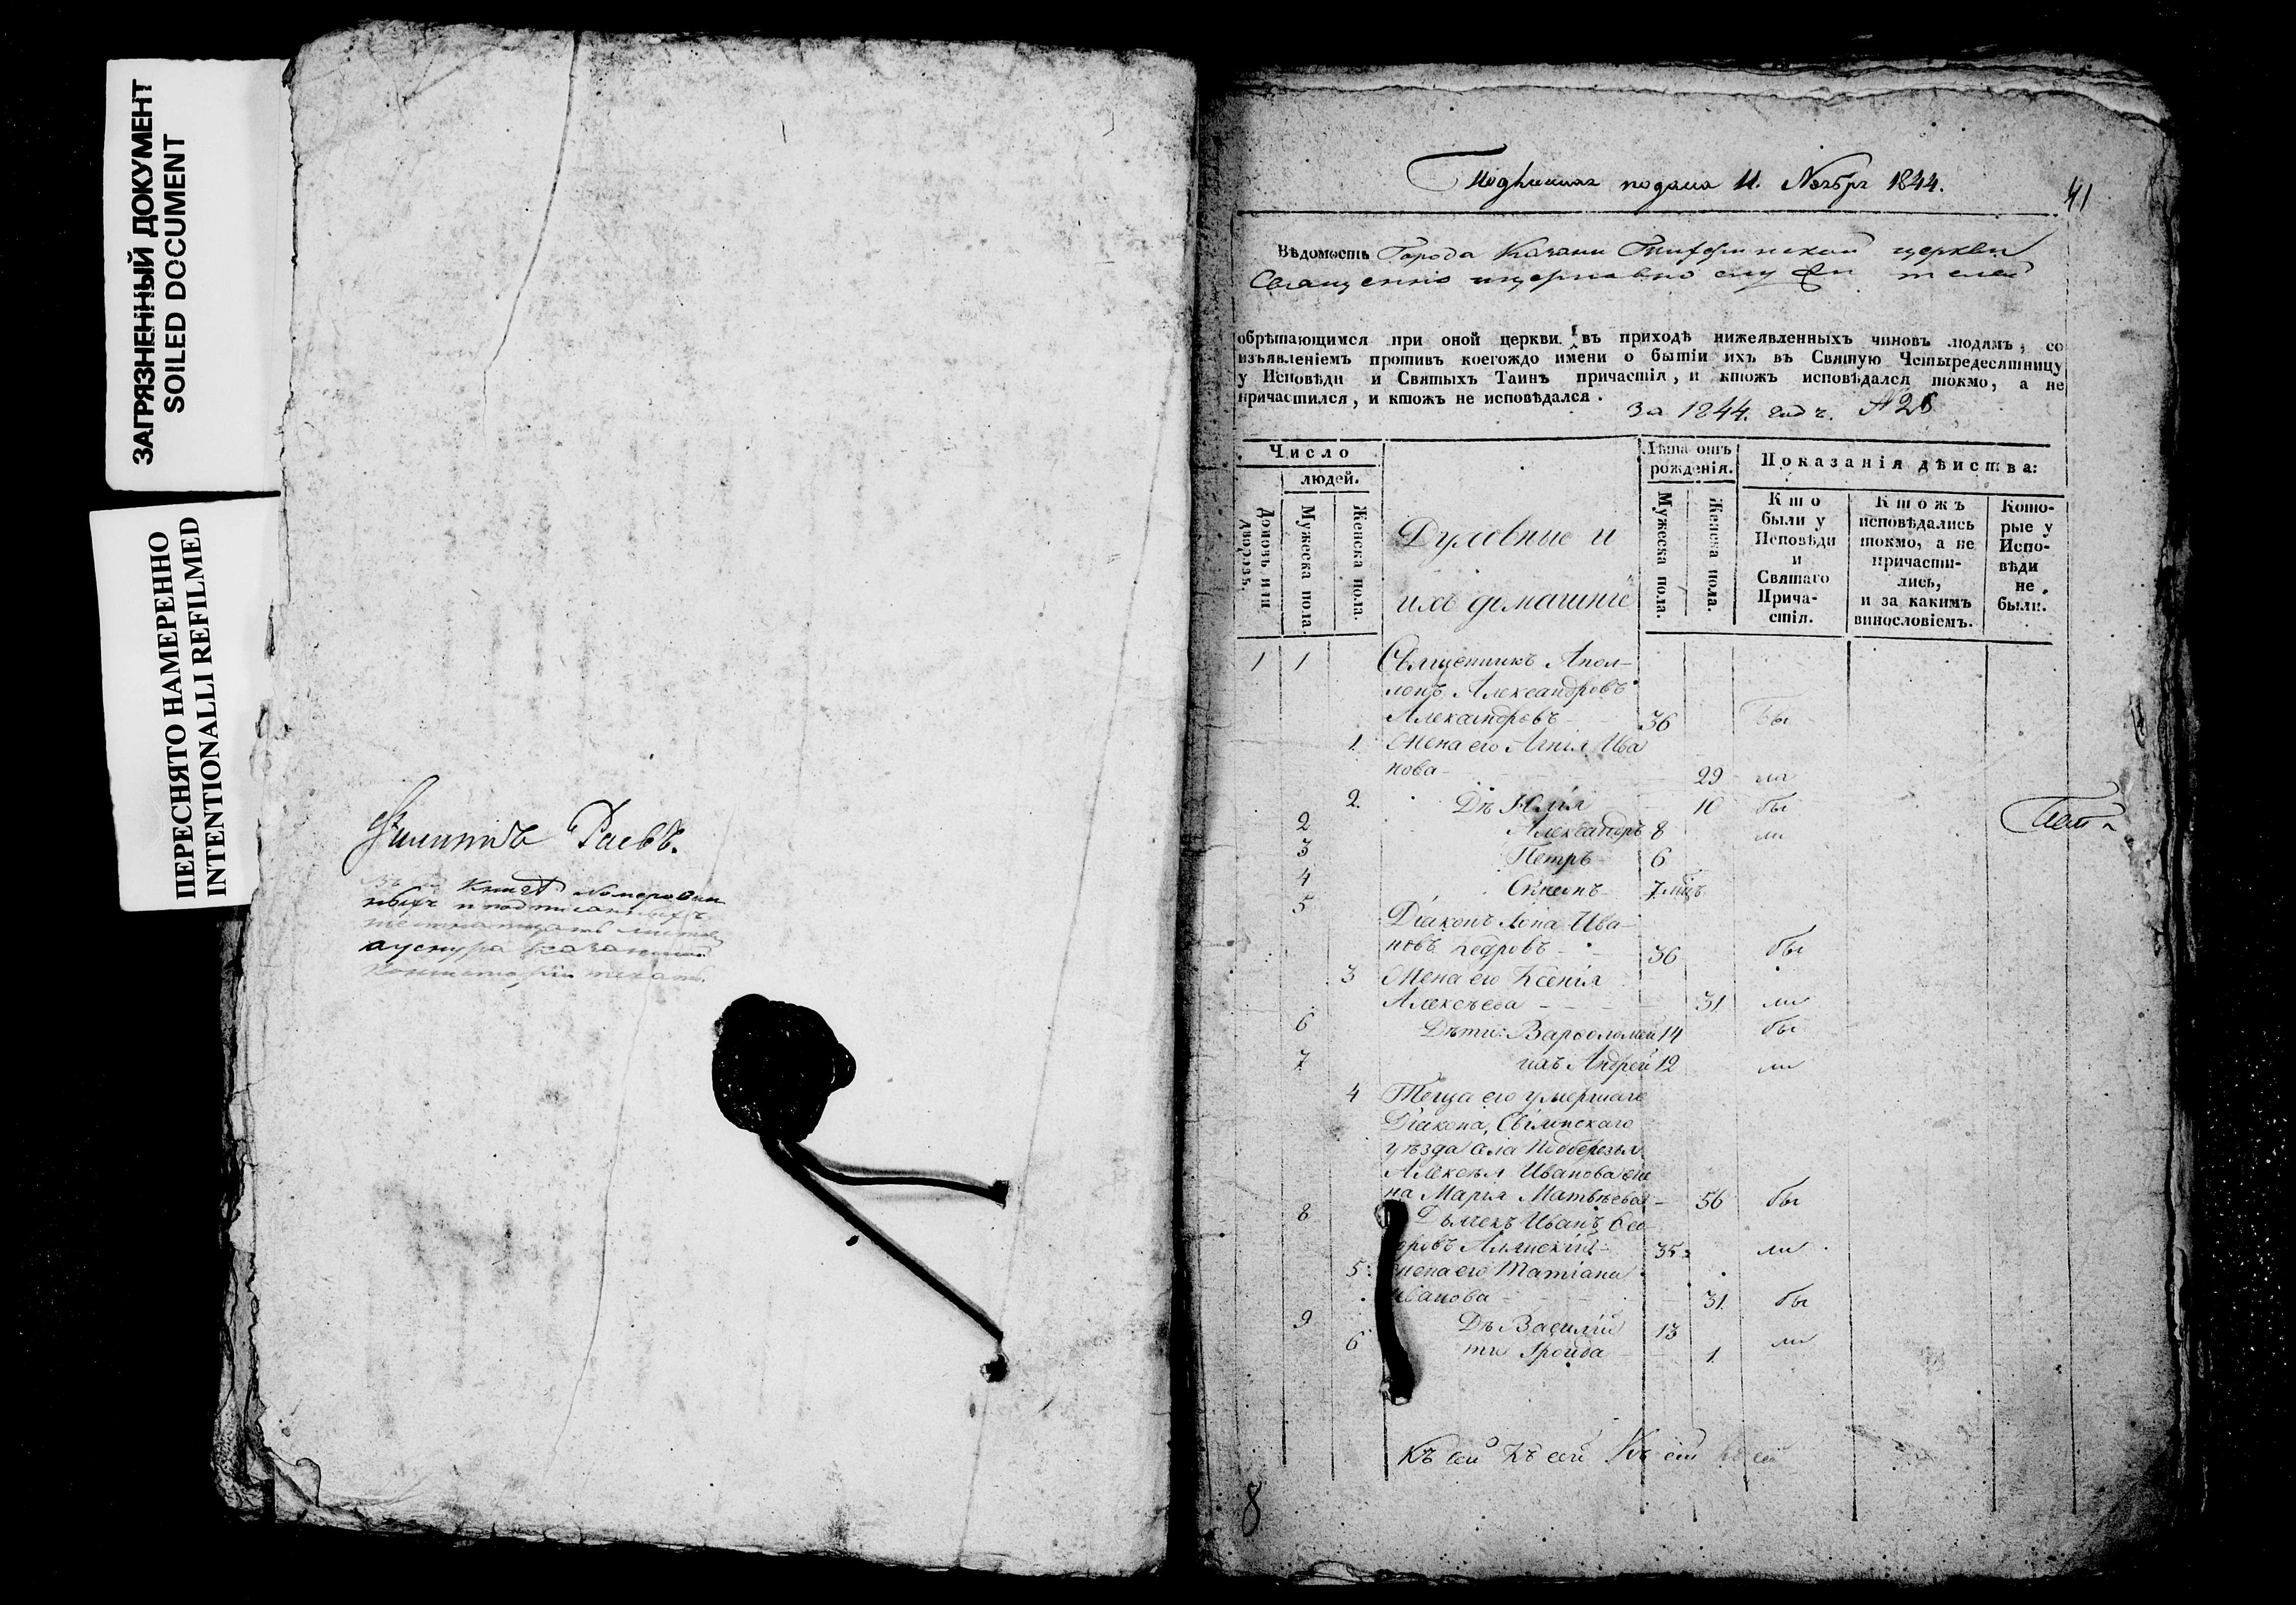 ЗАГРЯЗНЕННЫЙ ДОКУМЕНТ
SOILED DOCUMENT
ПЕРЕСНЯТО НАМЕРЕННО
INTENTIONALLI REFILMED
Филиппъ Раевъ.
книгѣ номерован
ныхъ и подписанныхъ
листов
Подлинная подана 11. Ноября 1844.
41
Вѣдомость Города Казани Тихвинской церкви
Священно и церковно служителей
обрѣтающимся при оной церкви въ приходѣ нижеявленныхъ чиновъ людямъ, со
изъявленіемъ противъ коегождо имени о бытіи ихъ въ Святую Четыредесятницу
у Исповѣди и Святыхъ Таинъ причастія, и ктожъ исповѣдался токмо, а не
причастился, и ктожъ не исповѣдался.
За 1844. годъ.
Число
людей.
Домовъ или дворовъ.
Мужеска пола.
Женска пола.
Духовные и
ихъ домашніе
Лѣта отъ
рожденія.
Мужеска пола.
Женска пола.
Показанія дѣйства:
Кто
были у
Исповѣди
и
Святаго
Прича-
стія.
Ктожъ
исповѣдались
токмо, а не
причасти-
лись,
и за какимъ
винословіемъ.
Кото-
рые у
Испо-
вѣди
не
были.
1 1 Священникъ Апол-
лонъ Александровъ
Александровъ 36 Бы
1. Жена его Агнія Ива
нова 29 ли
2. Дѣ Юлія 10 бы
2 Александръ 8 ли
3 Петръ 6
4 Симеонъ 7 мѣц
5 Діаконъ Іона Ива-
новъ Кедровъ 36 бы
3 Жена его Ксенія
Алексѣева 31 ли
6 Дѣти: Варѳоломей 14 бы
7 ихъ Андрей 12 ли
4 Теща его умершаго
Діакона, Свіяжскаго
уѣзда села Подберезья
Алексѣя Иванова же
на Марія Матвѣева 56 бы
8 Дьячекъ Иванъ Ѳео
оровъ 35 ли
5 жена его Татіана
Иванова 31. бы
9 Дѣ Василій 13
6 ти 1. ли
Къ сей Къ сей Къ сей
8